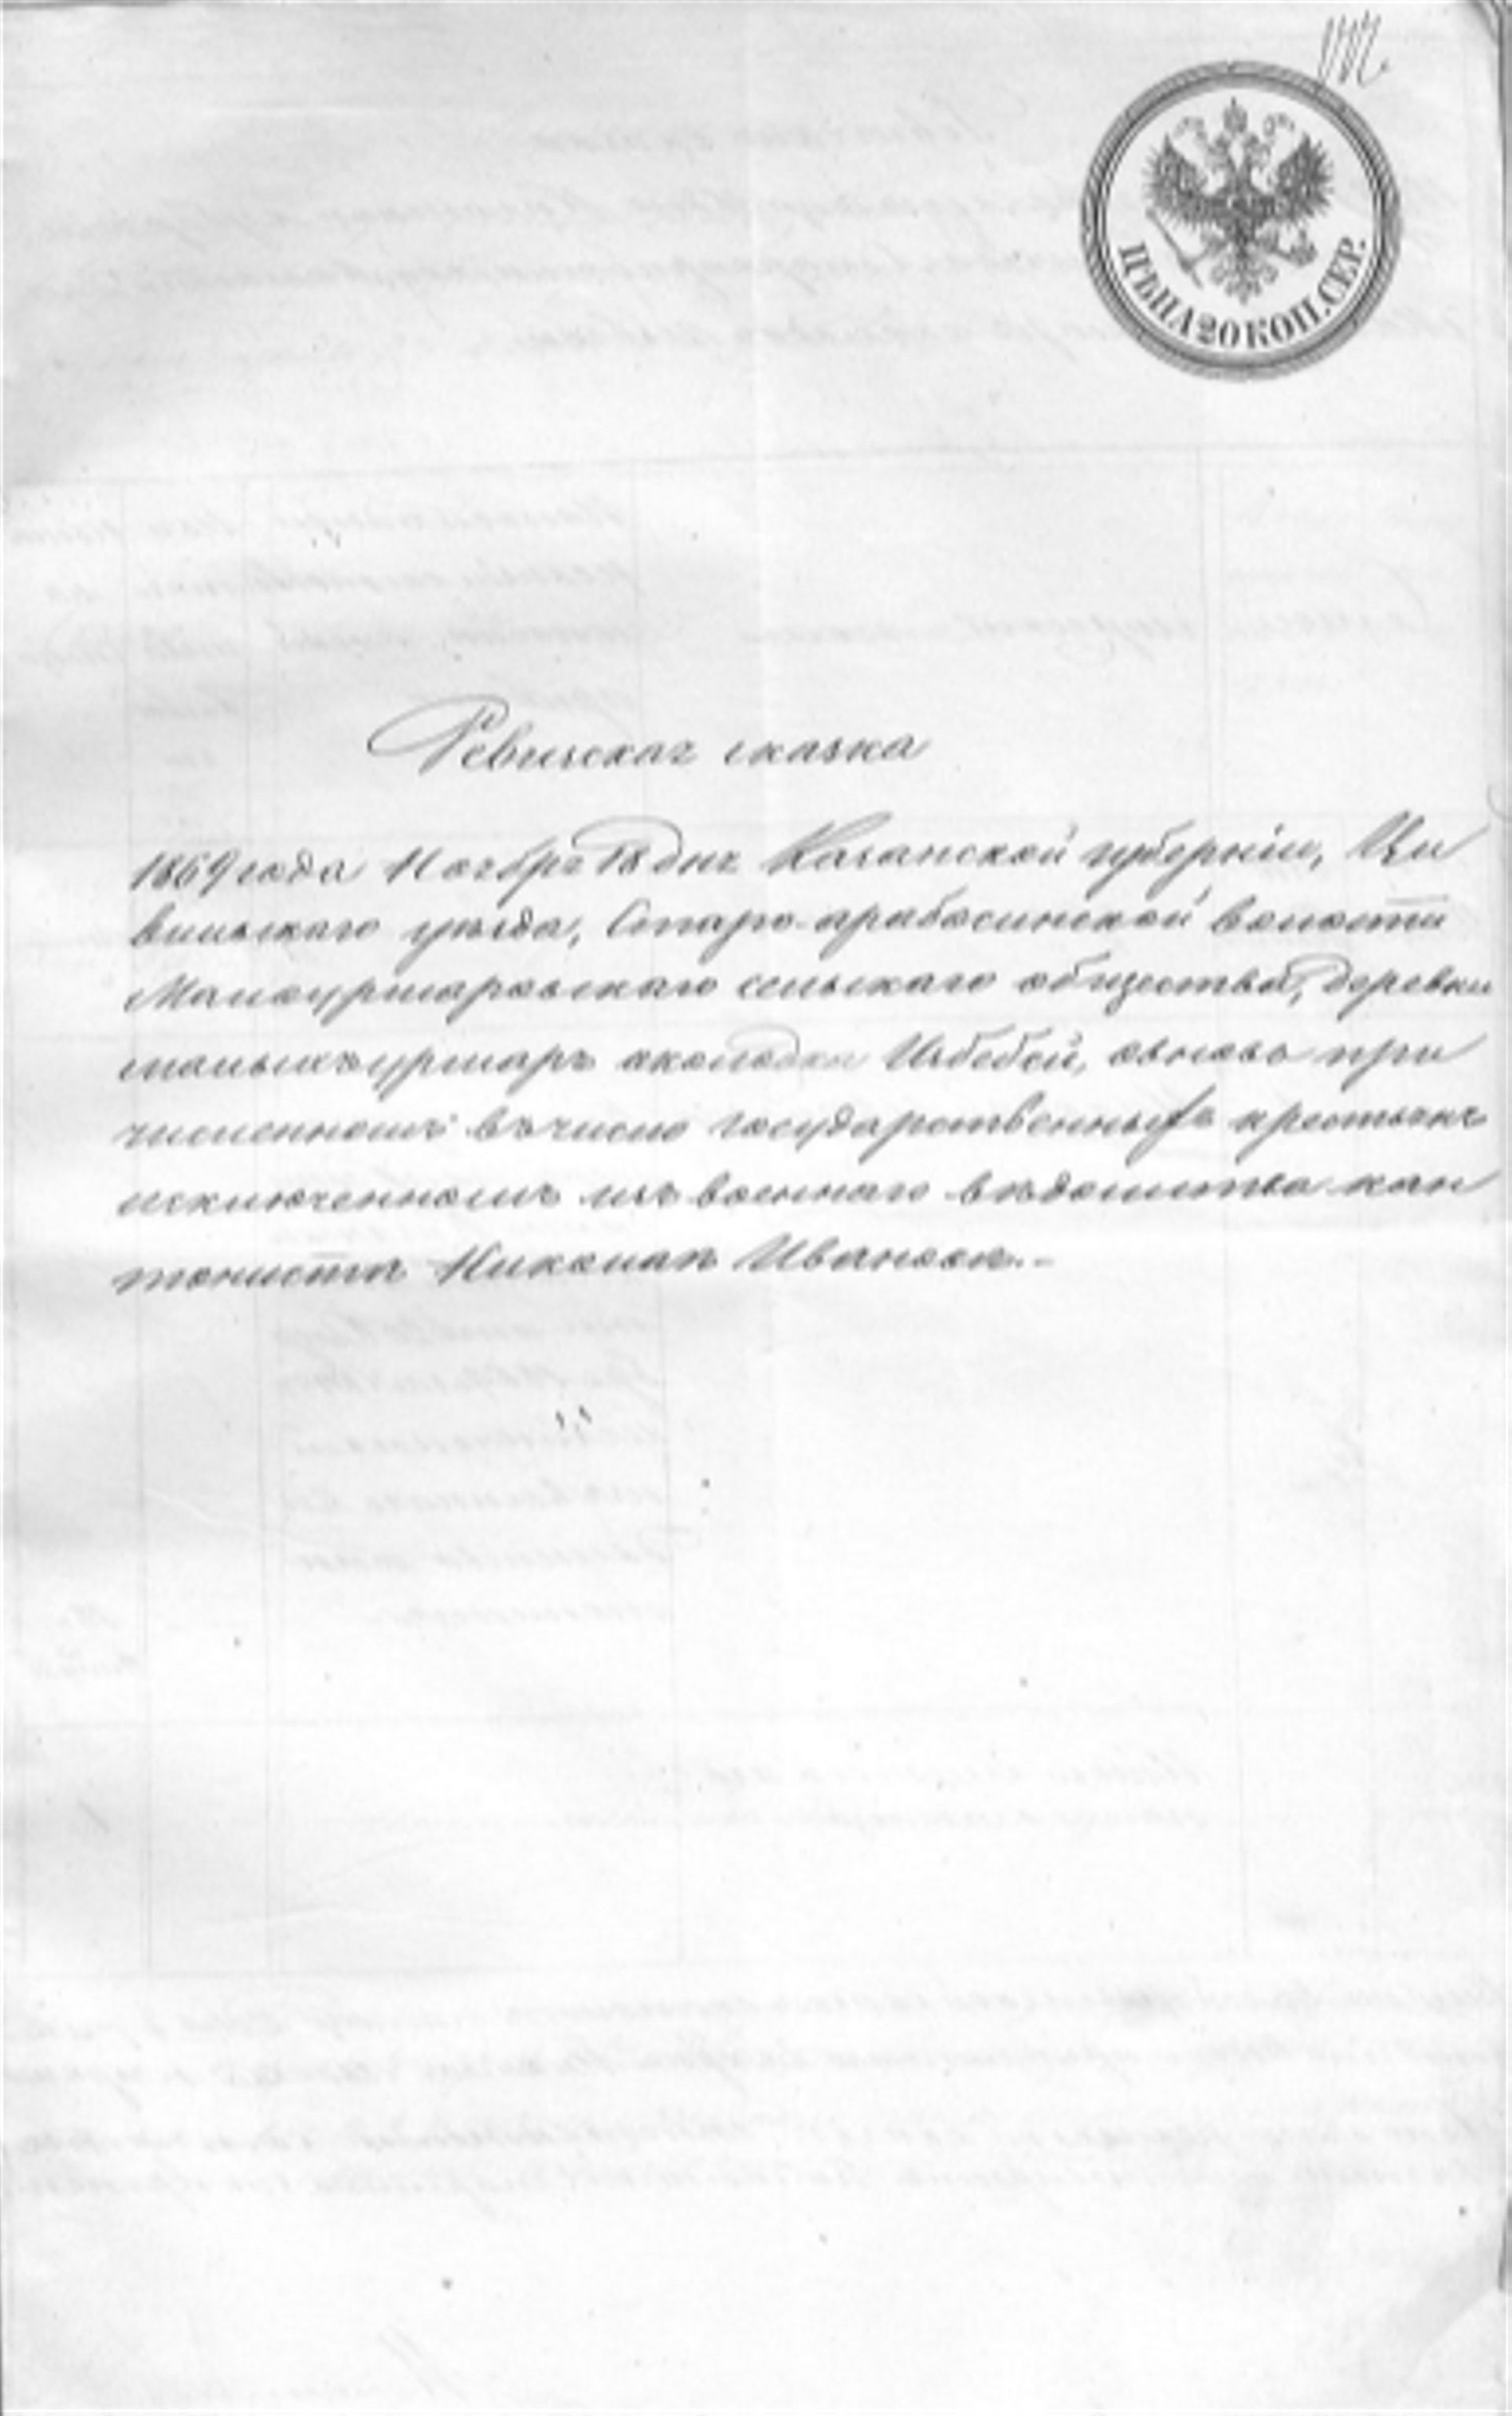 ЦѢНА 20 КОП. СЕР.
Ревизская сказка
1869 года Ноября 18 дня Казанской губерніи, Ци
вильскаго уѣзда, Старо-арабосинской волости
Малоурмарскаго сельскаго общества, деревни
малыхъ урмаръ околодка Избебей, овновь при
численномъ въ число государственныхъ крестьянъ
исключенномъ изъ военнаго вѣдомства кан
тониста Николая Иванова.-